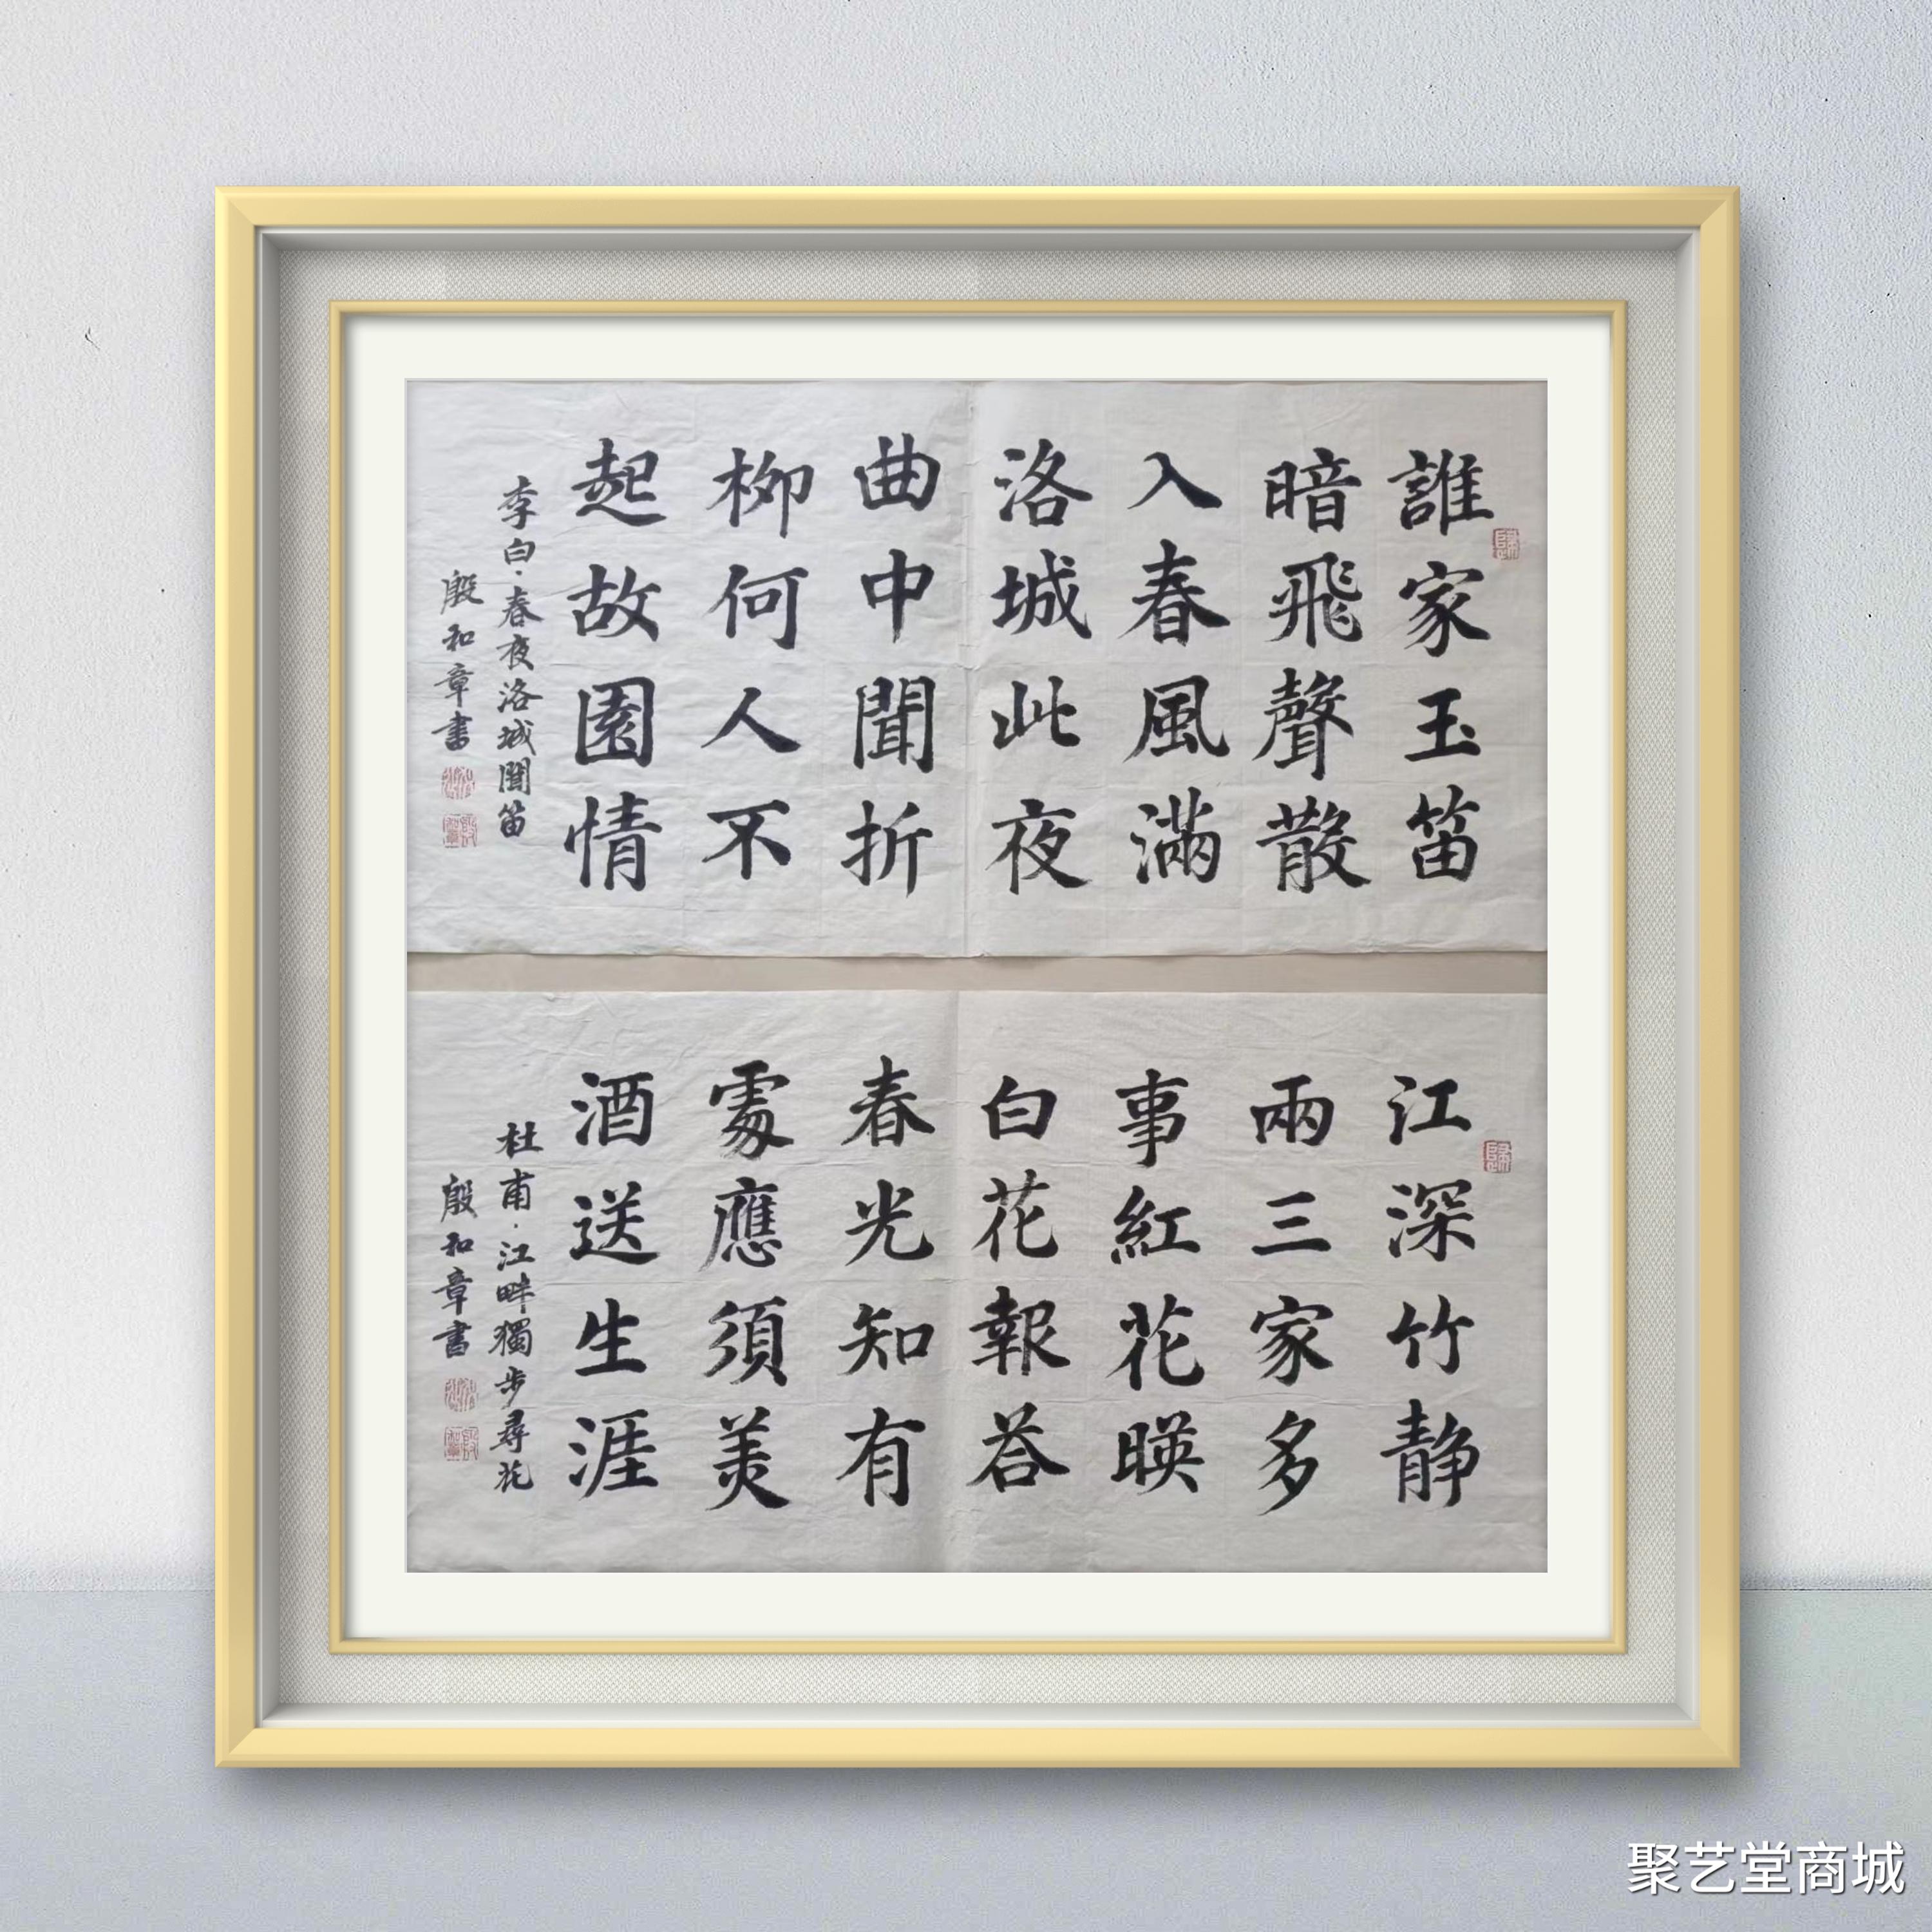 誰家玉笛
暗飛聲散
入春風滿
洛城此夜
曲中聞折
柳何人不
起故園情
李白·春夜洛城聞笛
殷和章書
江深竹静
兩三家多
事紅花暎
白花報荅
春光知有
處應須美
酒送生涯
杜甫·江畔獨步尋花
殷和章書
聚艺堂商城